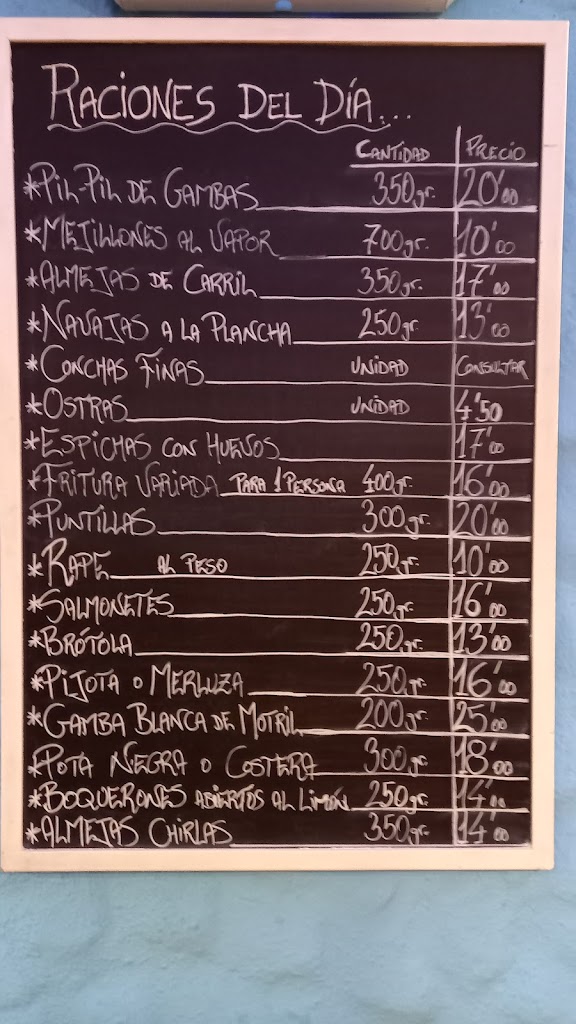 RACIONES DEL DÍA...
CANTIDAD PRECIO
*PIL-PIL DE GAMBAS 350gr. 20'00
*MEJILLONES AL VAPOR 700gr. 10'00
*ALMEJAS DE CARRIL 350gr. 17'00
*NAVAJAS A LA PLANCHA 250gr. 13'00
*CONCHAS FINAS UNIDAD CONSULTAR
*OSTRAS UNIDAD 4'50
*ESPICHAS CON HUEVOS 17'00
*FRITURA VARIADA PARA 1 PERSONA 400gr. 16'00
*PUNTILLAS 300gr. 20'00
*RAPE AL PESO 250gr. 10'00
*SALMONETES 250gr. 16'00
*BRÓTOLA 250gr. 13'00
*PIJOTA O MERLUZA 250gr. 16'00
*GAMBA BLANCA DE MOTRIL 200gr. 25'00
*POTA NEGRA O COSTERA 300gr. 18'00
*BOQUERONES ABIERTOS AL LIMÓN 250gr. 14'00
*ALMEJAS CHIRLAS 350gr. 14'00